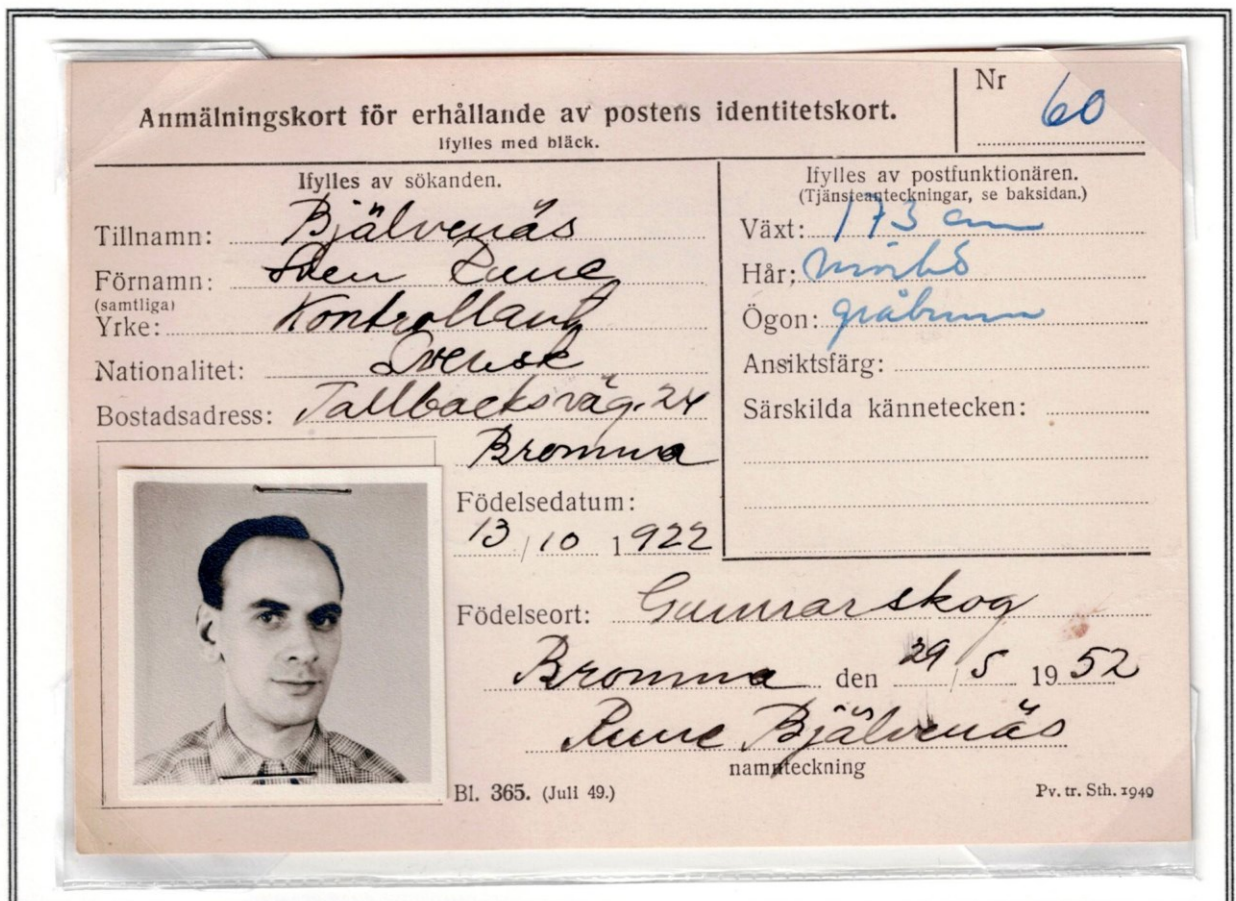 Anmälningskort för erhållande av postens identitetskort.
Ifylles med bläck.
Nr 60
Ifylles av sökanden.
Tillnamn: Bjälvenäs
Förnamn: Sven Rune
(samtliga)
Yrke: Kontrollant
Nationalitet: Svensk
Bostadsadress: Tallbacksväg. 24
Bromma
Födelsedatum:
13/10 1922
Ifylles av postfunktionären.
(Tjänsteanteckningar, se baksidan.)
Växt: 173 cm
Hår:
Ögon: gråbrun
Ansiktsfärg:
Särskilda kännetecken:
Födelseort: Gunnarskog
Bromma den 29/5 1952
Rune Bjälvenäs
namnteckning
Bl. 365. (Juli 49.)
Pv. tr. Sth. 1949